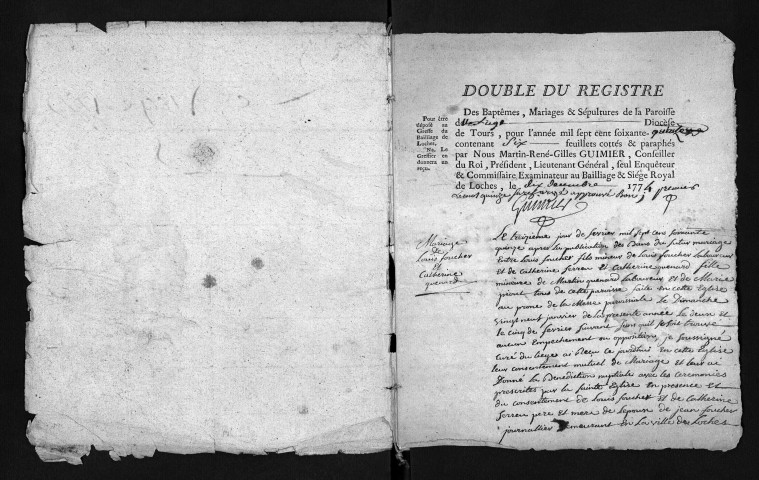 DOUBLE DU REGISTRE
Des Baptêmes, Mariages & Sépultures de la Paroisse
du Liege Diocèse
de Tours, pour l'année mil sept cent soixante-quinze
contenant Six feuillets cottés & paraphés
par Nous Martin-René-Gilles GUIMIER, Conseiller
du Roi, Président, Lieutenant Général, seul Enquêteur
& Commissaire Examinateur au Bailliage & Siége Royal
de Loches, le dix decembre 1774 premier
quinze approuvé bon
Guimier
Pour être
déposé au
Greffe du
Bailliage de
Loches,
Na. Le
Greffier en
donnera un
reçu.
Mariage
de
louis foucher
et
Catherine
guenard
Le treizieme jour de fevrier mil sept cent soixante
quinze apres la publication des Bans du futur mariage
Entre louis foucher fils mineur de louis foucher laboureur
et de Catherine ferreu et Catherine guenard fille
mineure de Martin guenard laboureux et de Marie
priout tous de cette paroisse faite en cette Eglise
au prone de la Messe paroissiale le Dimanche
vingt neuf janvier de la presente année la deux et
le cinq de fevrier suivant sans quil se soit trouvé
aucun Empechement ou opposition, je soussigné
curé du liege ai Reçu en cette Eglise
leur consentement mutuel de Mariage et leur ai
Donné la Benediction nuptiale avec les ceremonies
prescrites par la Sainte Eglise en presence et
du consentement de louis foucher et de Catherine
ferreu pere et mere de lepoux de jean foucher
journallier Demeurant en la ville de Loches